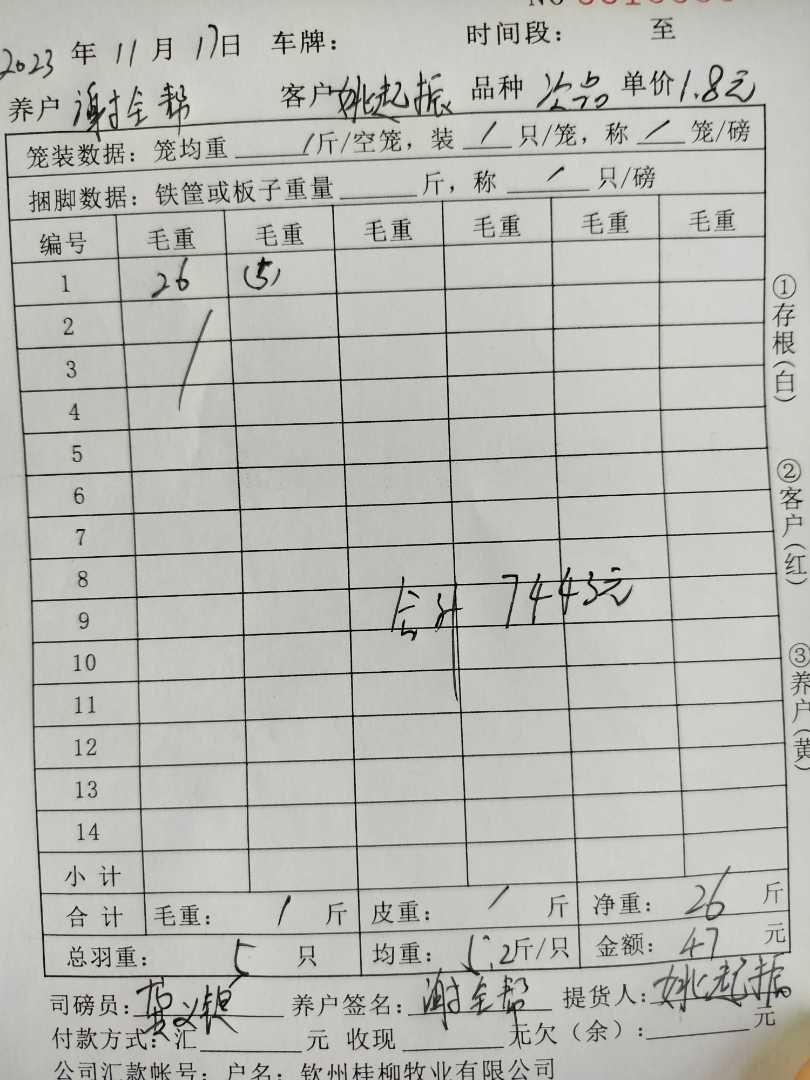 2023 年 11 月 17日 车牌： 时间段： 至
养户 谢全帮 客户 姚起振 品种 次品 单价 1.8元
笼装数据：笼均重 / 斤/空笼，装 / 只/笼，称 / 笼/磅
捆脚数据：铁筐或板子重量 斤，称 / 只/磅
编号 毛重 毛重 毛重 毛重 毛重 毛重
1 26 (5)
2
3
4
5
6
7
8
合计 7443元
9
10
11
12
13
14
小 计
合 计 毛重： / 斤 皮重： / 斤 净重： 26 斤
总羽重： 5 只 均重： 5.2斤/只 金额： 47 元
司磅员： 养户签名：谢全帮 提货人：姚起振
付款方式：汇 元 收现 无欠（余）： 元
公司汇款帐号：户名：钦州桂柳牧业有限公司
①存根（白）
②客户（红）
③养户（黄）